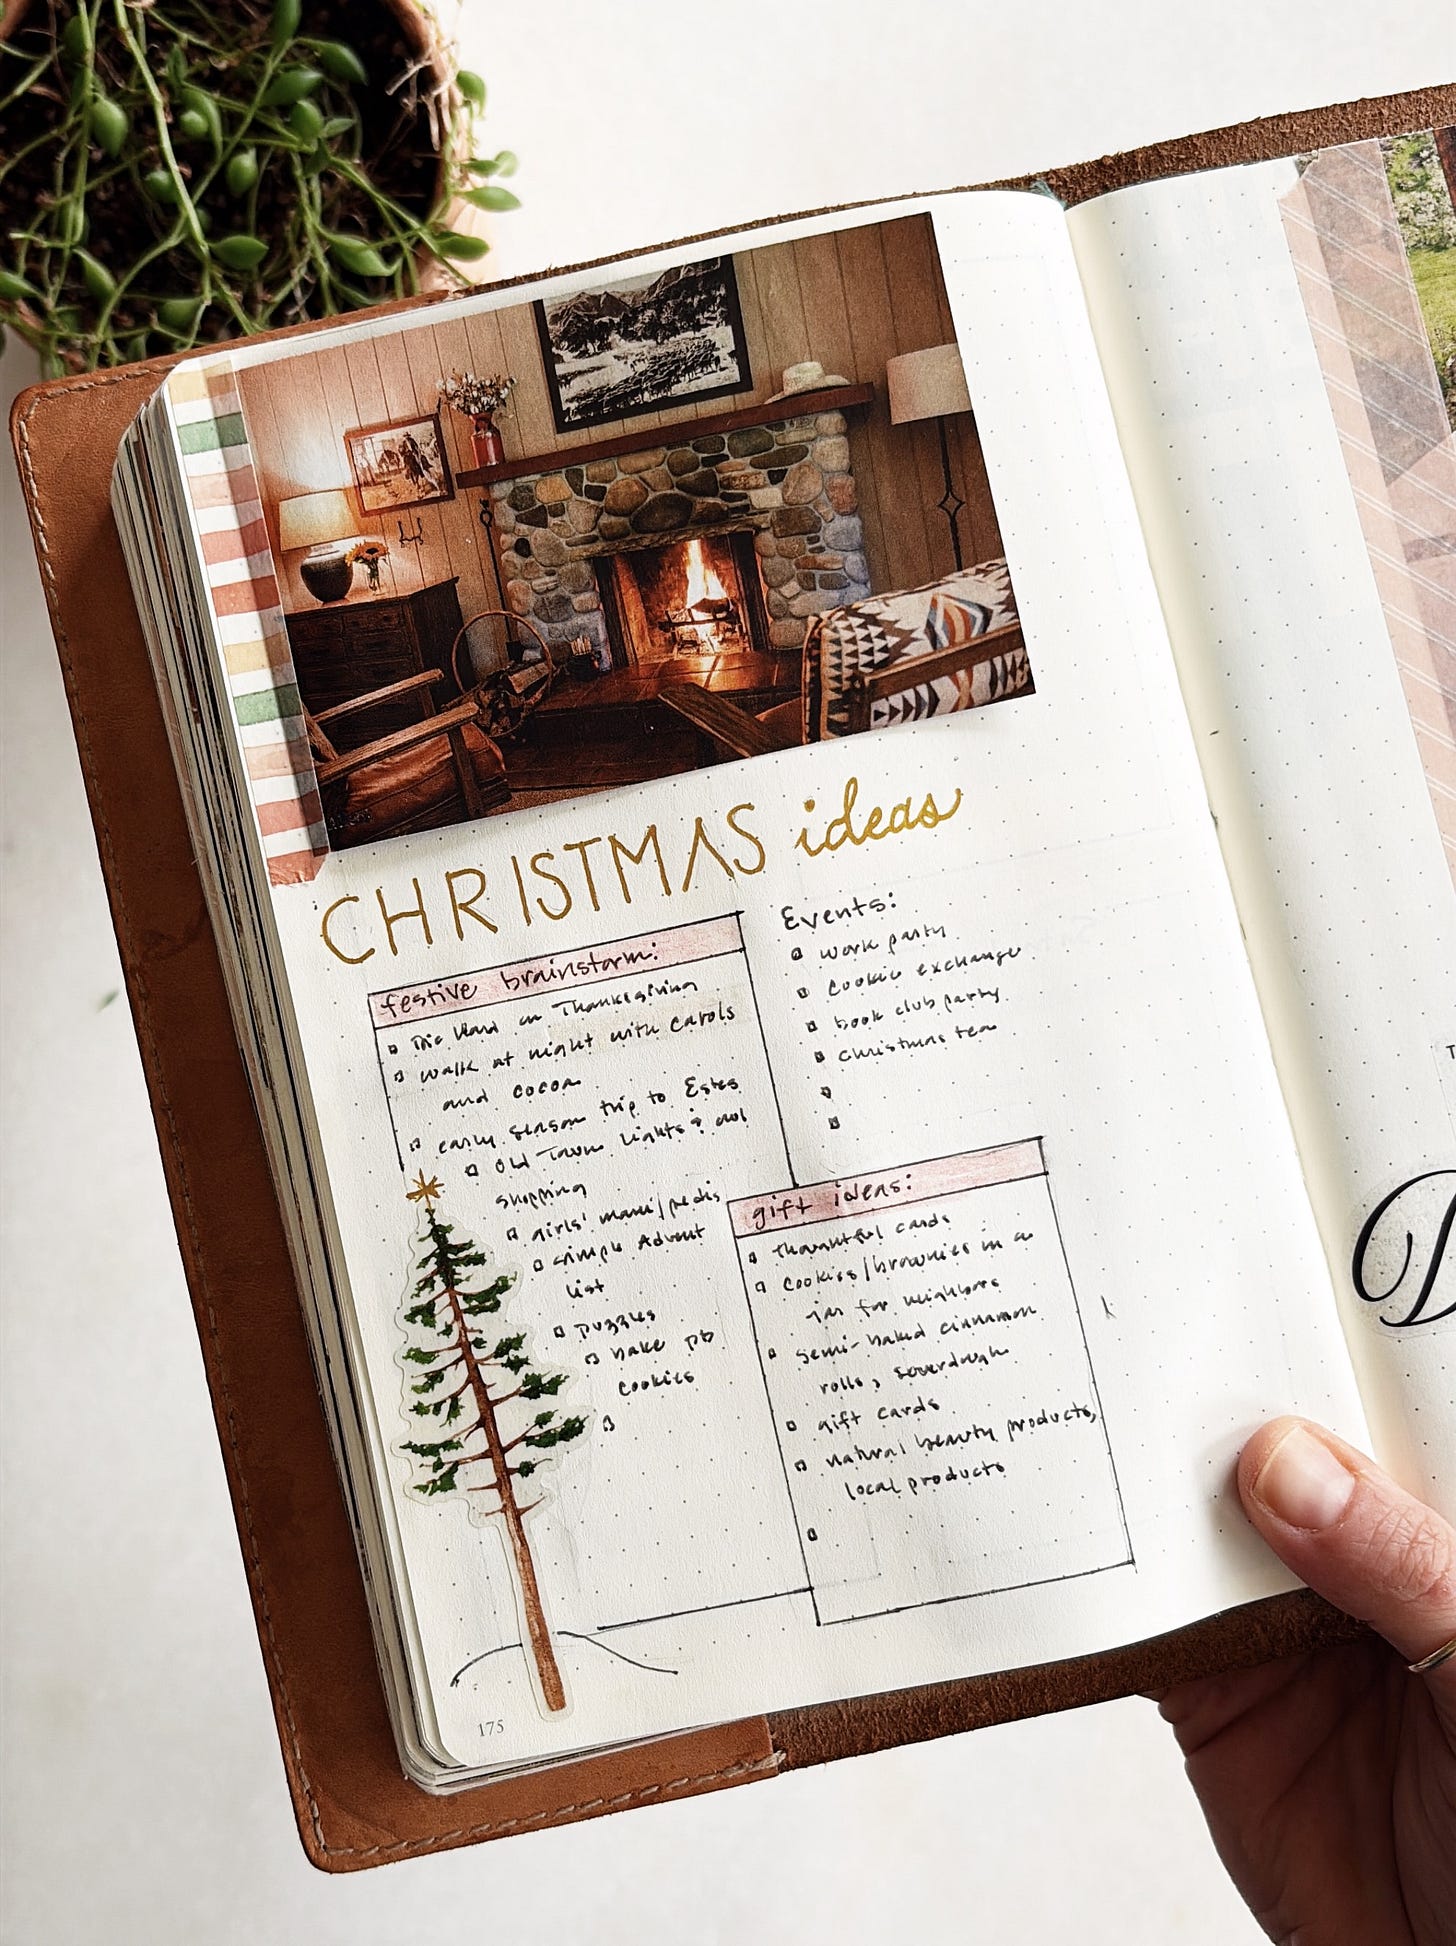 CHRISTMAS ideas
festive brainstorm:
Die Hard on Thanksgiving
walk at night with carols
and cocoa
early season trip to Estes
Old Town lights &
shopping
girls' mani/pedis
simple Advent
list
puzzles
bake pb
cookies
Events:
work party
cookie exchange
book club party
christmas tea
gift ideas:
thoughtful cards
cookies/brownies in a
jar for neighbors
semi-baked cinnamon
rolls, sourdough
gift cards
natural beauty products,
local products
175